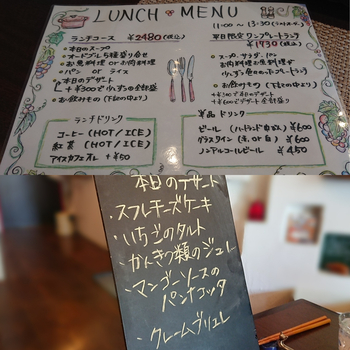 LUNCH ♥ MENU
ランチコース ¥2480(税込)
・本日のスープ
・オードブル5種盛り合せ
・お魚料理 or お肉料理
・パン or ライス
・本日のデザート
+¥300で少しずつ全部盛
・お飲もの(下記の中より)
ランチドリンク
コーヒー (HOT/ICE)
紅茶 (HOT/ICE)
アイスカフェオレ +¥50
11:00〜13:30
平日限定 ワンプレートランチ
¥1730(税込)
スープ、サラダ、パン
お肉料理とお魚料理が
少しずつ
・お飲もの(下記の中より)
+¥300でデザート
+¥600でデザート全部盛り
単品ドリンク
ビール ¥600
グラスワイン (赤 or 白) ¥600
ノンアルコールビール ¥450
本日のデザート
・スフレチーズケーキ
・いちごのタルト
・かんきつ類のジュレ
・マンゴーソースの
パンナコッタ
・クレームブリュレ